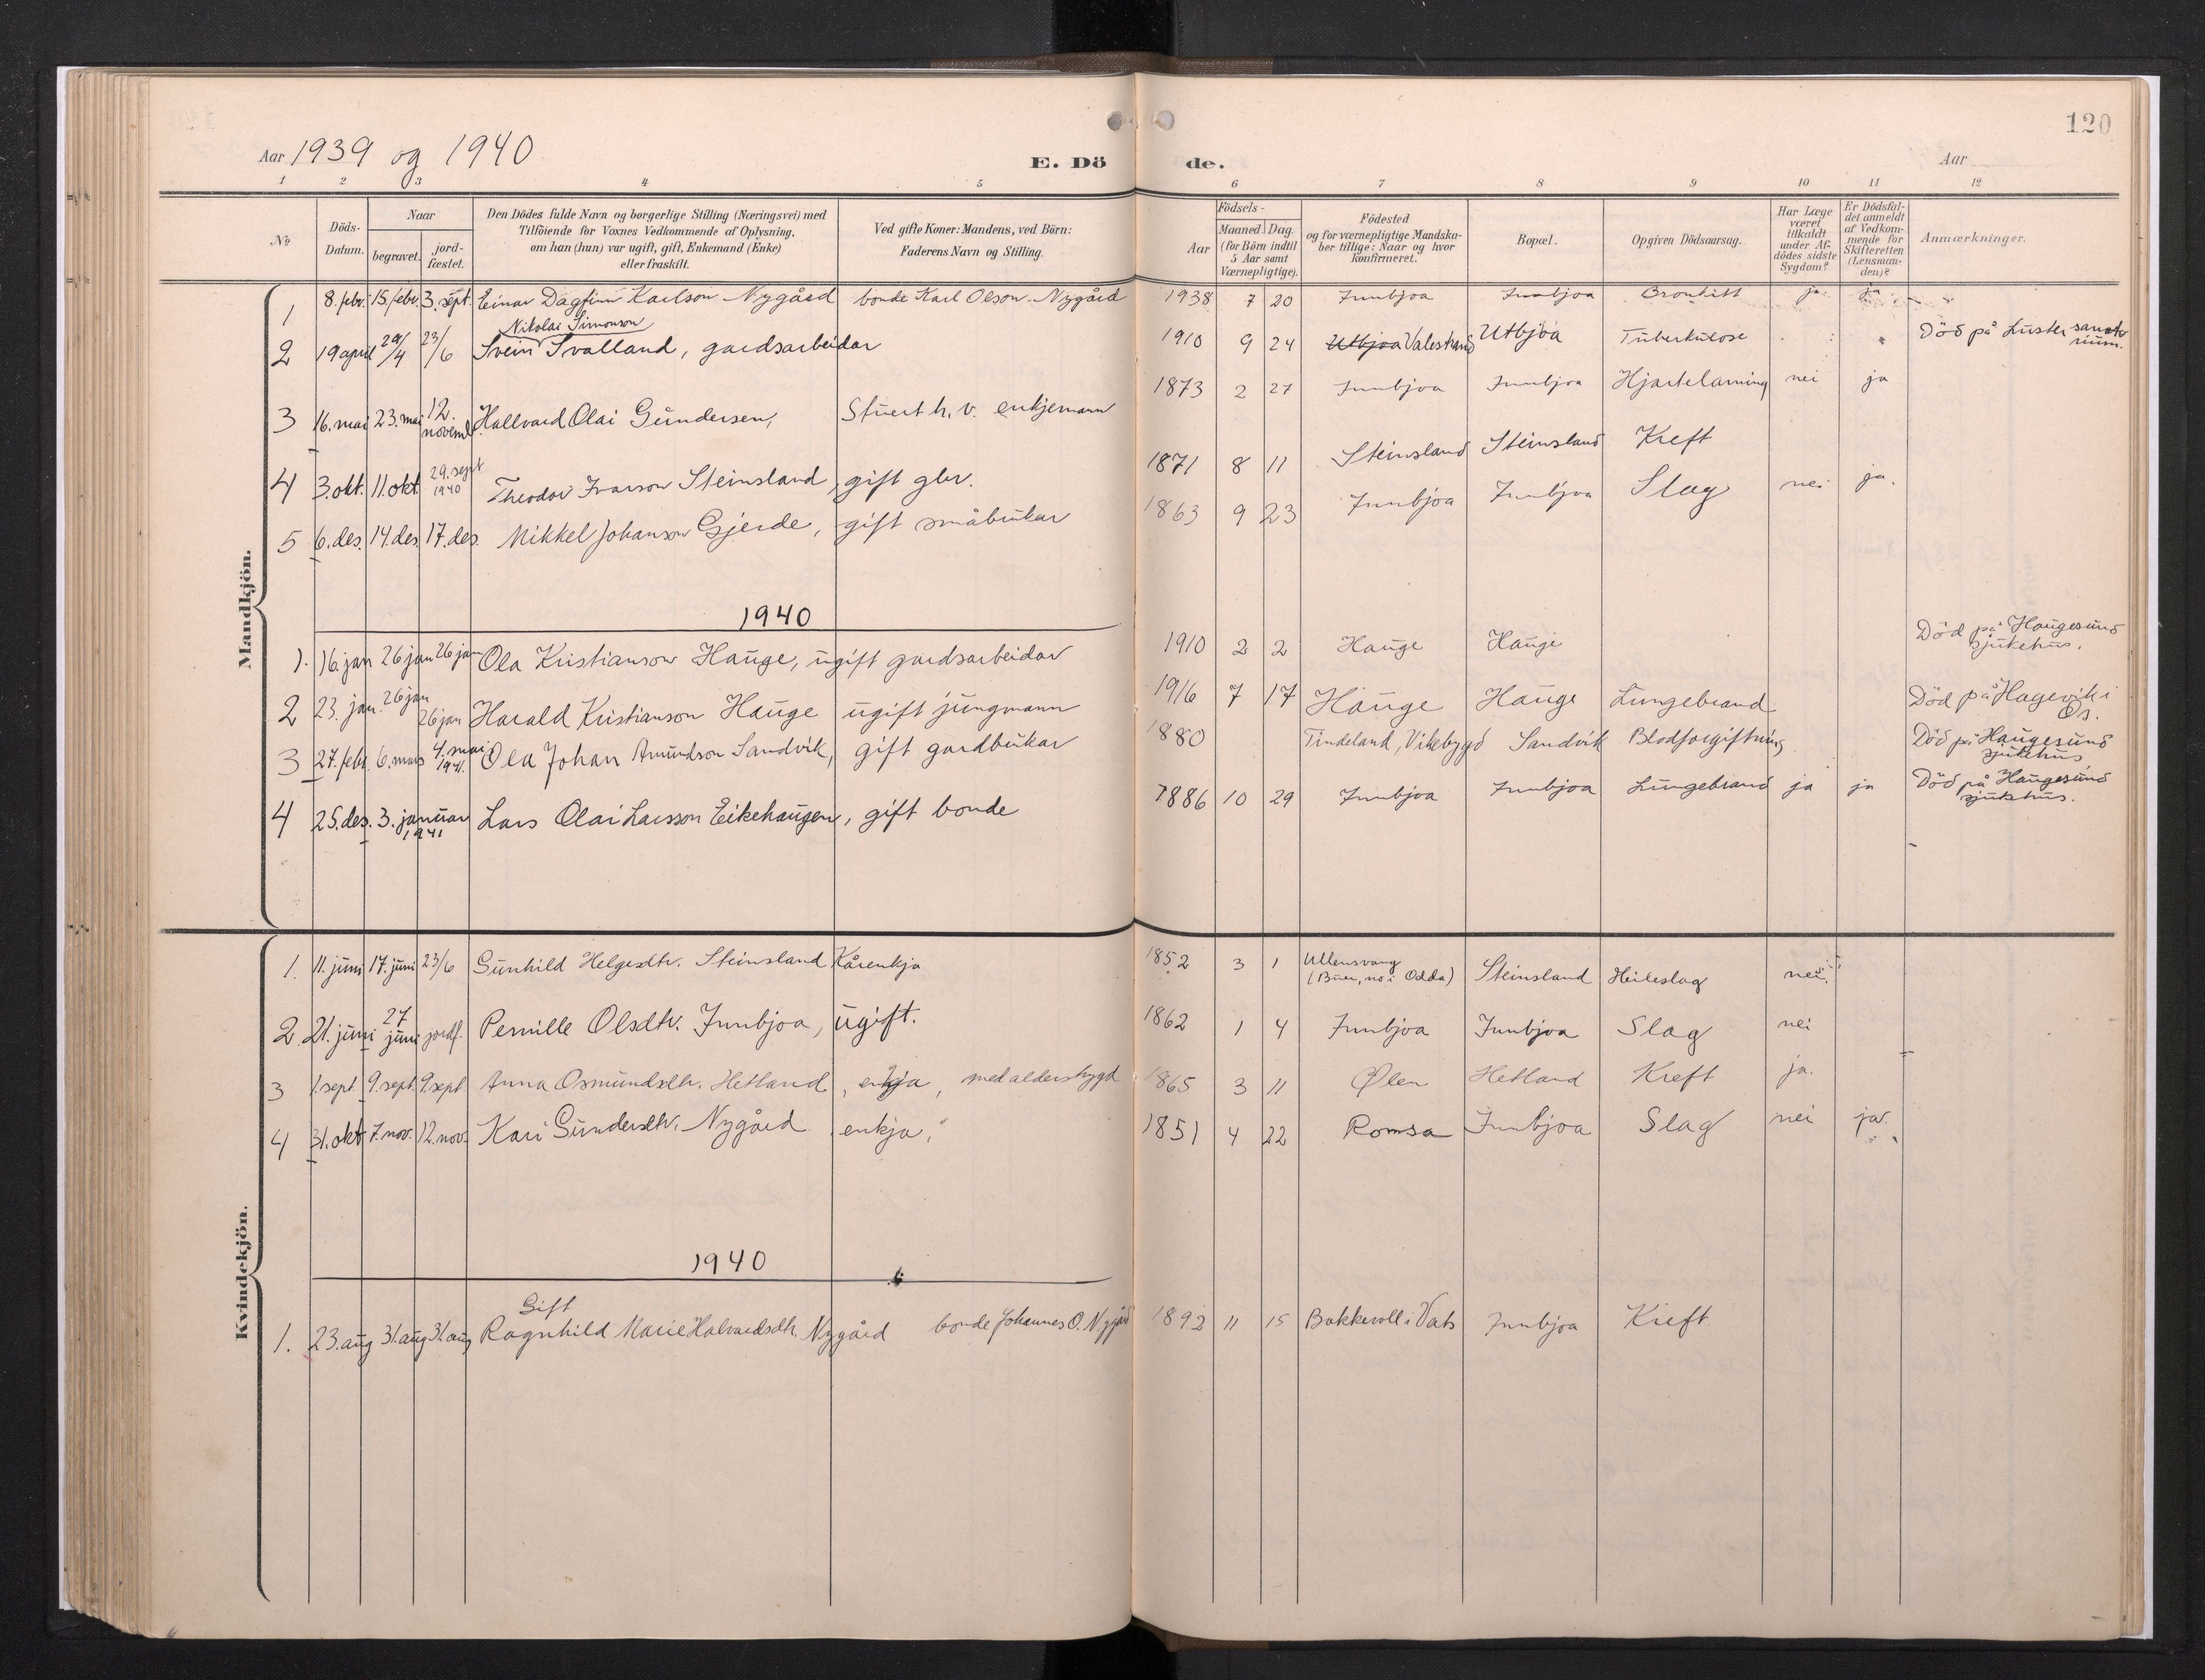 120
Aar 1939 og 1940
E. Dö de.
Aar
1 2 3 4 5 6 7 8 9 10 11 12
№
Döds-Datum.
Naar
begravet.
jord-fæstet.
Den Dödes fulde Navn og borgerlige Stilling (Næringsvei) med
Tilföiende for Voxnes Vedkommende af Oplysning,
om han (hun) var ugift, gift, Enkemand (Enke)
eller fraskilt.
Ved gifte Koner: Mandens, ved Börn:
Faderens Navn og Stilling.
Födsels-
Aar
Maaned. Dag.
(for Börn indtil
5 Aar samt
Værnepligtige).
Födested
og for værnepligtige Mandska-
ber tillige: Naar og hvor
konfirmeret.
Bopæl.
Opgiven Dödsaarsag.
Har Læge
været
tilkaldt
under Af-
dödes sidste
Sygdom?
Er Dödsfal-
det anmeldt
af Vedkom-
mende for
Skifteretten
(Lensman-
den)?
Anmærkninger.
Mandkjön.
1 8. febr. 15. febr. 3. sept. Einar Dagfinn Karlson Nygård bonde Karl Olson Nygård 1938 7 20 Innbjoa Innbjoa Bronkitt ja ja
Nikolai Simonson
2 19 april 29/4 23/6 Svein Svalland, gardsarbeidar 1910 9 24 Utbjoa Valestrand Utbjoa Tuberkulose Död på Luster sanatorium.
3 16. mai 23. mai 12. novemb. Hallvard Olai Gundersen, Stuert h. v. enkjemann 1873 2 27 Innbjoa Innbjoa Hjartelaming nei ja
4 3. okt. 11. okt. 29. sept 1940 Theodor Ivarson Steinsland, gift gbr. 1871 8 11 Steinsland Steinsland Kreft
5 6. des. 14. des. 17. des. Mikkel Johanson Gjerde, gift småbrukar 1863 9 23 Innbjoa Innbjoa Slag nei ja.
1940
1. 16. jan 26 jan 26 jan Ola Kristianson Hauge, ugift gardsarbeidar 1910 2 2 Hauge Hauge Död på Haugesund sjukehus.
2 23. jan. 26 jan 26 jan Harald Kristianson Hauge ugift jungmann 1916 7 17 Hauge Hauge Lungebrand Död på Hagevik i Os.
3 27. febr. 6. mars 4. mai 1941. Ola Johan Amundson Sandvik, gift gardbrukar 1880 Tindeland, Vikebygd Sandvik Blodforgiftning Död på Haugesund sjukehus
4 25. des. 3. januar 1941 Lars Olai Larsson Eikehaugen, gift bonde 1886 10 29 Innbjoa Innbjoa Lungebrand ja ja Död på Haugesund sjukehus.
Kvindekjön.
1. 11. juni 17. juni 23/6 Gunhild Helgesdtr. Steinsland Kårenkja 1852 3 1 Ullensvang (Buer, no i Odda) Steinsland Heileslag nei.
2. 21. juni 27 juni jordf. Pernille Olsdtr. Innbjoa, ugift. 1862 1 4 Innbjoa Innbjoa Slag nei
3 1. sept. 9. sept. 9. sept Anna Osmundsdtr. Hetland, enkja, med alderstrygd 1865 3 11 Ølen Hetland Kreft ja.
4 31. okt 7. nov. 12. nov. Kari Gundersdtr. Nygård enkja, 1851 4 22 Romsa Innbjoa Slag nei ja.
1940
Gift
1. 23. aug 31. aug 31. aug Ragnhild Marie Halvardsdtr. Nygård bonde Johannes O. Nygård 1892 11 15 Bakkevoll i Vats Innbjoa Kreft